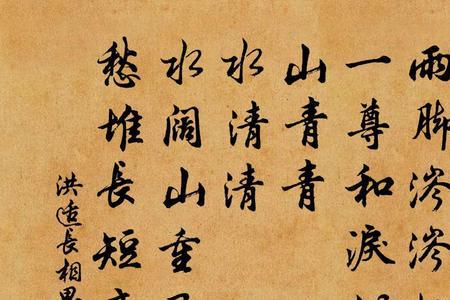 雨脚涔涔
一尊和淚
山青青
水清清
水闊山重
愁堆長短
洪适長相思